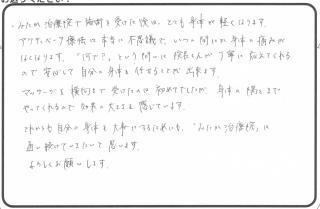 みたか治療院で施術を受けた後は、とても身体が軽くなります。
アクティベータ療法は本当に不思議で、いつの間にか身体の痛みが
なくなります。“何で?”、という問いに院長さんが丁寧に応えてくれる
ので安心して自分の身体を任せることが出来ます。
マッサージを横向きで受けたのは初めてでしたが、身体の隅々まで
やってくれるので効果の大きさを感じています。
これからも自分の身体を大事にするためにも、“みたか治療院”に
通い続けていきたいと思います。
よろしくお願いします。